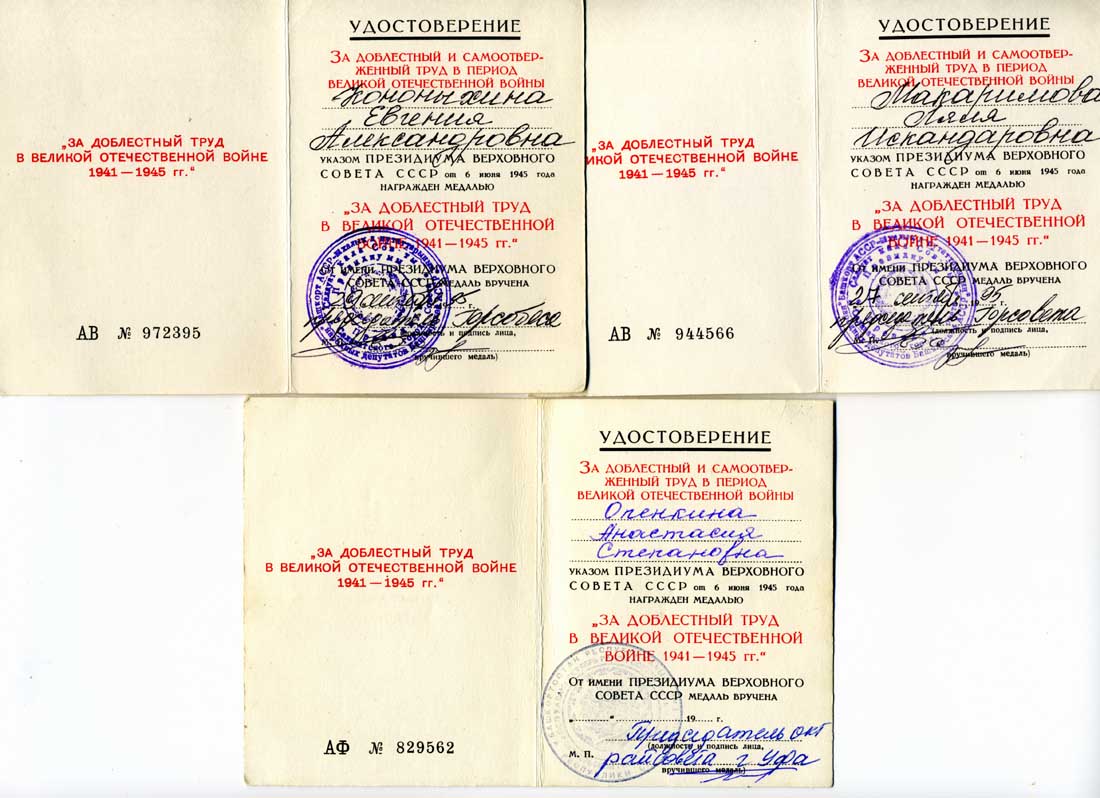 „ЗА ДОБЛЕСТНЫЙ ТРУД
В ВЕЛИКОЙ ОТЕЧЕСТВЕННОЙ ВОЙНЕ
1941—1945 гг.“
АВ № 972395
УДОСТОВЕРЕНИЕ
ЗА ДОБЛЕСТНЫЙ И САМООТВЕР-
ЖЕННЫЙ ТРУД В ПЕРИОД
ВЕЛИКОЙ ОТЕЧЕСТВЕННОЙ ВОЙНЫ
Кононыхина
Евгения
Александровна
УКАЗОМ ПРЕЗИДИУМА ВЕРХОВНОГО
СОВЕТА СССР от 6 июня 1945 года
НАГРАЖДЕН МЕДАЛЬЮ
„ЗА ДОБЛЕСТНЫЙ ТРУД
В ВЕЛИКОЙ ОТЕЧЕСТВЕННОЙ
ВОЙНЕ 1941—1945 гг.“
От имени ПРЕЗИДИУМА ВЕРХОВНОГО
СОВЕТА СССР МЕДАЛЬ ВРУЧЕНА
должность и подпись лица,
вручившего медаль)
„ЗА ДОБЛЕСТНЫЙ ТРУД
ИКОЙ ОТЕЧЕСТВЕННОЙ ВОЙНЕ
1941—1945 гг.“
АВ № 944566
УДОСТОВЕРЕНИЕ
ЗА ДОБЛЕСТНЫЙ И САМООТВЕР-
ЖЕННЫЙ ТРУД В ПЕРИОД
ВЕЛИКОЙ ОТЕЧЕСТВЕННОЙ ВОЙНЫ
Макаримова
Ляля
Искандаровна
УКАЗОМ ПРЕЗИДИУМА ВЕРХОВНОГО
СОВЕТА СССР от 6 июня 1945 года
НАГРАЖДЕН МЕДАЛЬЮ
„ЗА ДОБЛЕСТНЫЙ ТРУД
В ВЕЛИКОЙ ОТЕЧЕСТВЕННОЙ
ВОЙНЕ 1941—1945 гг.“
От имени ПРЕЗИДИУМА ВЕРХОВНОГО
СОВЕТА СССР МЕДАЛЬ ВРУЧЕНА
27 сентября 1995 г.
Горсовета
(должность и подпись лица,
М. П.
вручившего медаль)
„ЗА ДОБЛЕСТНЫЙ ТРУД
В ВЕЛИКОЙ ОТЕЧЕСТВЕННОЙ ВОЙНЕ
1941—1945 гг.“
АФ № 829562
УДОСТОВЕРЕНИЕ
ЗА ДОБЛЕСТНЫЙ И САМООТВЕР-
ЖЕННЫЙ ТРУД В ПЕРИОД
ВЕЛИКОЙ ОТЕЧЕСТВЕННОЙ ВОЙНЫ
Опенкина
Анастасия
Степановна
УКАЗОМ ПРЕЗИДИУМА ВЕРХОВНОГО
СОВЕТА СССР от 6 июня 1945 года
НАГРАЖДЕН МЕДАЛЬЮ
„ЗА ДОБЛЕСТНЫЙ ТРУД
В ВЕЛИКОЙ ОТЕЧЕСТВЕННОЙ
ВОЙНЕ 1941—1945 гг.“
От имени ПРЕЗИДИУМА ВЕРХОВНОГО
СОВЕТА СССР МЕДАЛЬ ВРУЧЕНА
„......“ 19..... г.
Председатель окт
(должность и подпись лица,
М. П. райсовета г Уфа
вручившего медаль)